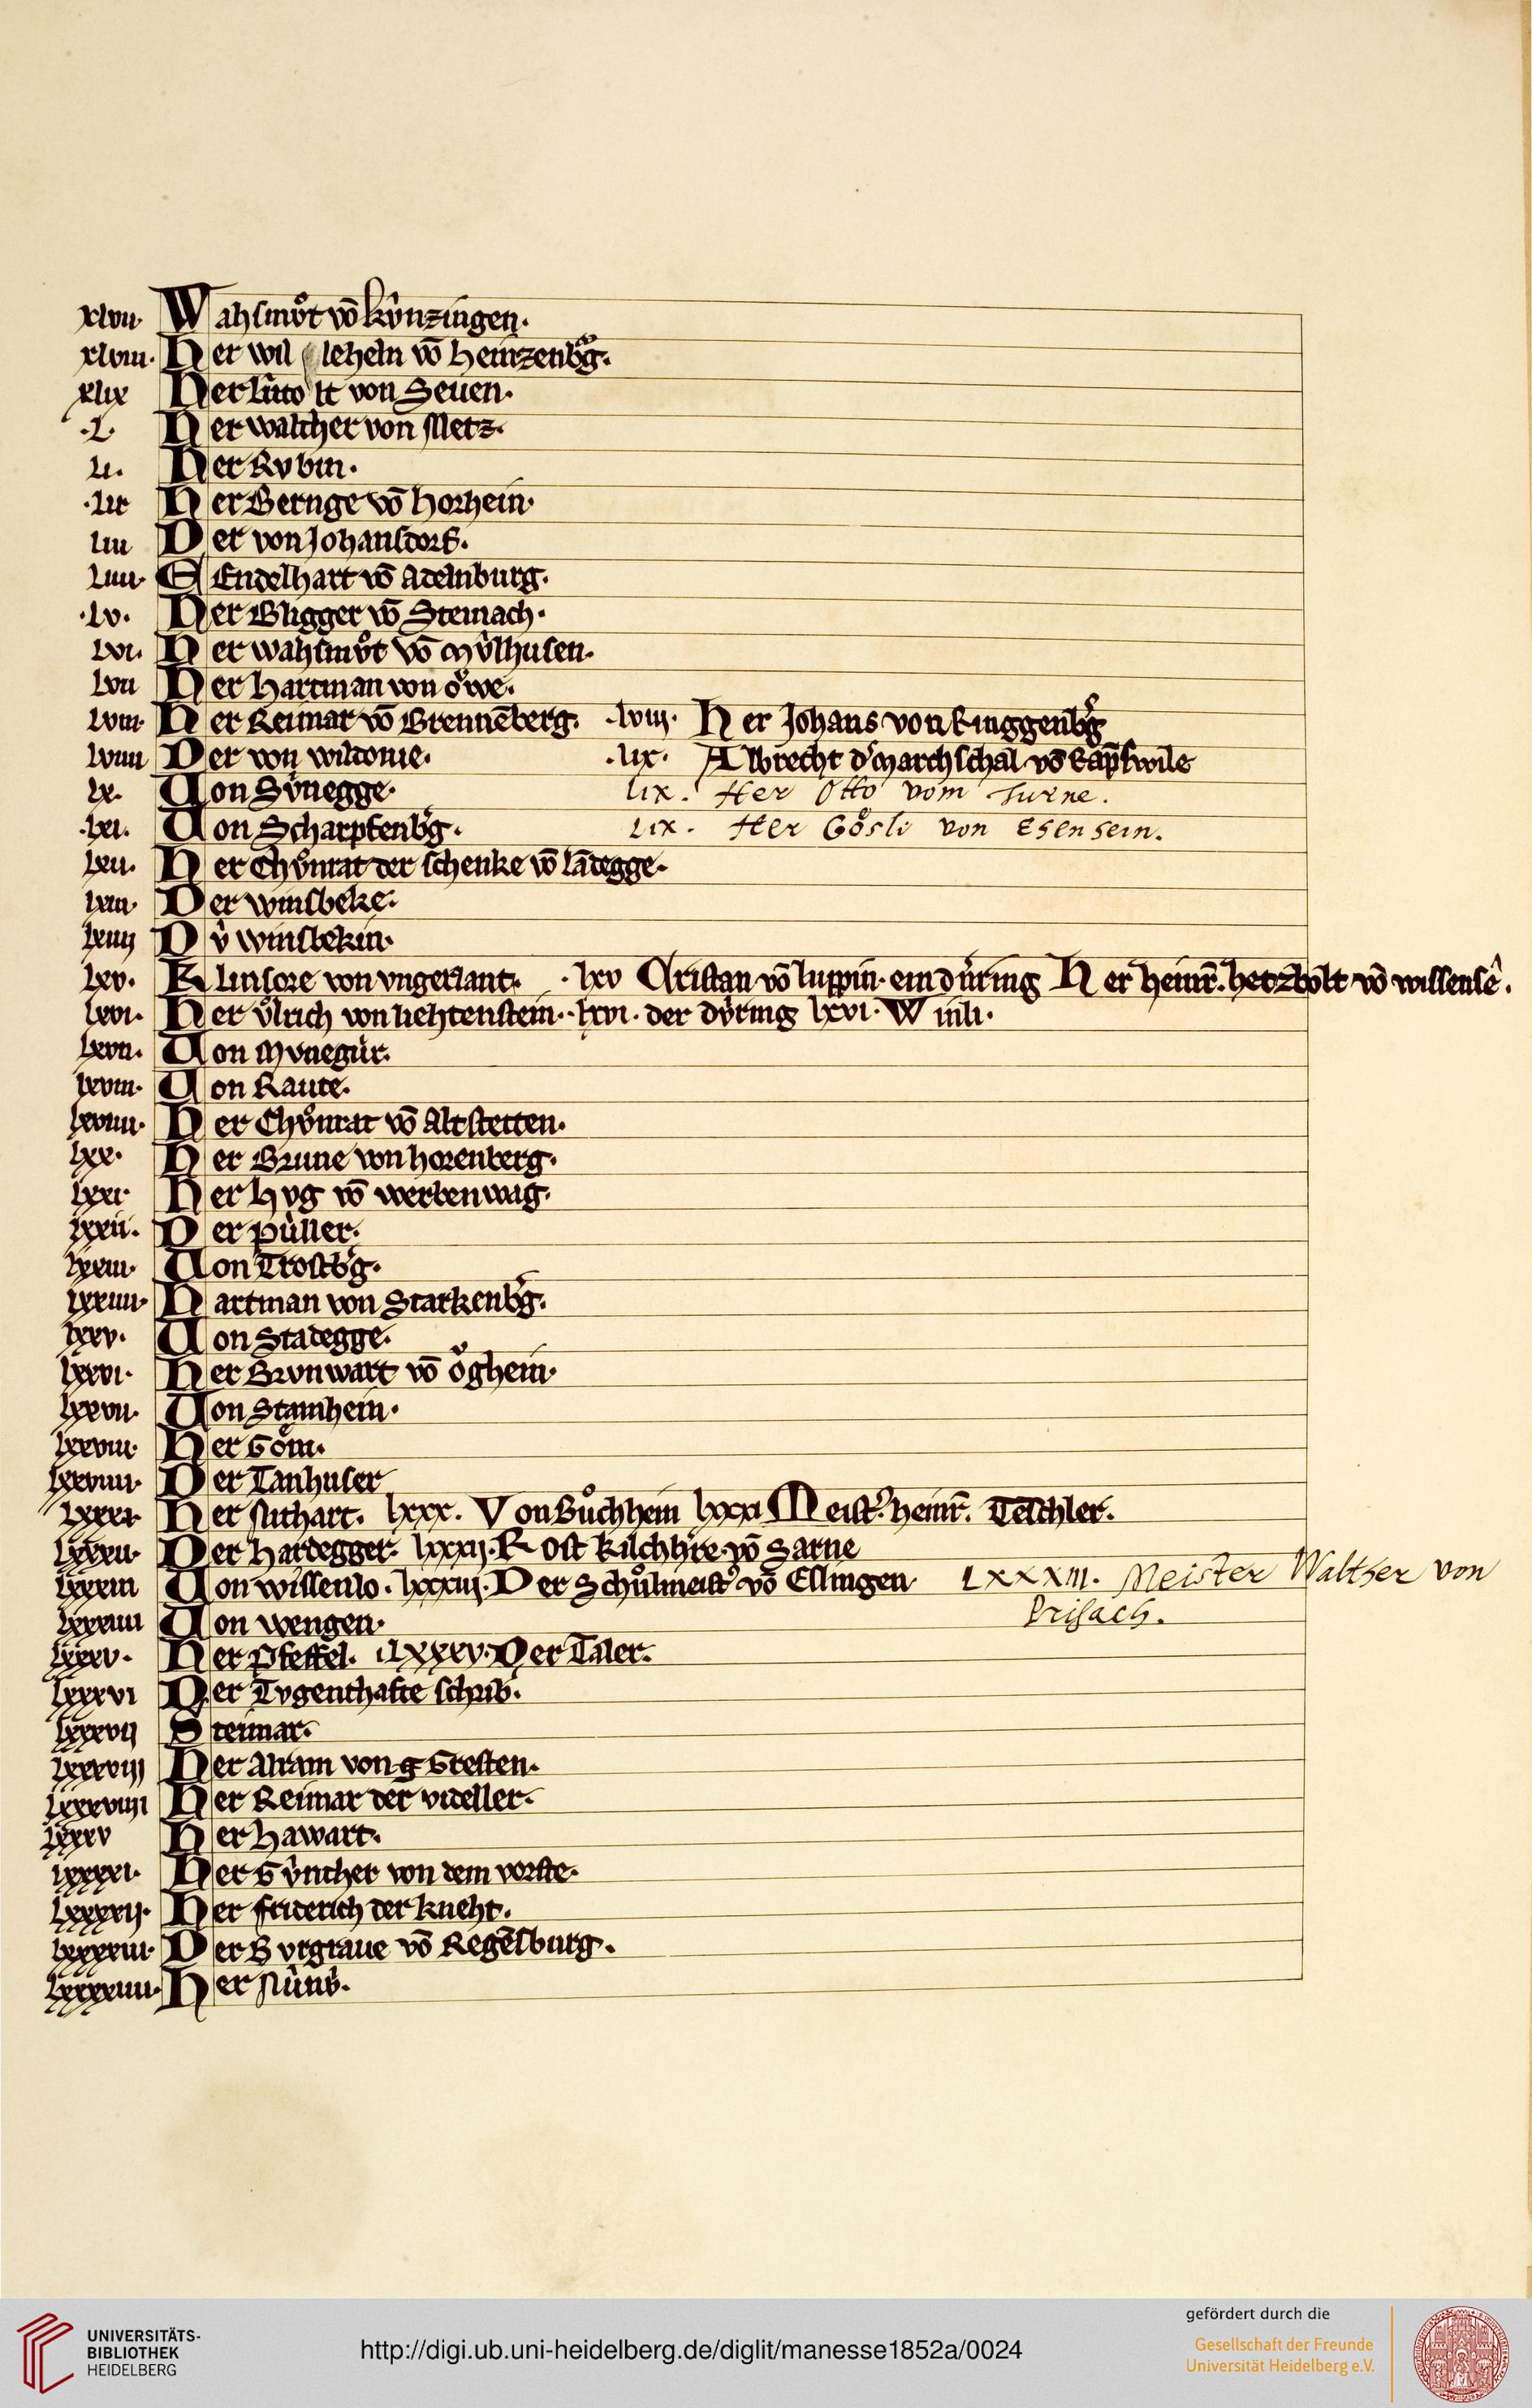 xlvii· Wahsmuͦt vō kv̂nzingen·
xlviii· Her wil leheln vō heinzenb͛g·
xlix Her lûto lt von Seuen·
·L· Her walther von Metz·
Li· Her Rvbin·
·Lii Her Bernge vō horhein·
Liii Der von Johansdorf·
Liiii· Endelhart vō Adelnburg·
·Lv· Her Bligger vō Steinach·
Lvi· Her wahsmuͦt vō mv̂lhusen·
Lvii Her hartman von oͮwe·
Lviii· Her Reimar vō Brennēberg· ·lviij· Her Johans von Ringgenb͛g
Lviiii Der von wildonie· ·Lix· Albrecht d͛ marchschal vō Rap̄swile
Lx· Uon Sv̂negge· Lix. Her Otto vom Turne.
·Lxi· Uon Scharpfenb͛g· Lix. Her Gösli von Ehensein.
Lxii· Her Chuͦnrat der schenke vō lādegge·
Lxiii· Der winsbeke·
Lxiiij Dv̂ winsbekin·
Lxv· Klinsore von vngerlant· ·lxv Cristan vō luppin· ein dûring Her heinr̄· hetzbolt vō wissensê·
Lxvi· Her vͦlrich von liehtenstein· ·lxvi· der dv̂ring lxvi· Winli·
Lxvii· Uon mvnegûr·
lxviii· Uon Raute·
lxviiii· Her Chuͦnrat vō Altstetten·
lxx· Her Brune von horenberg·
lxxi Her hvg vō werbenwag·
lxxii· Der pûller·
lxxiii· Uon Trostb͛g·
lxxiiii· Hartman von Starkenb͛g·
lxxv· Uon Stadegge·
lxxvi· Her Brvnwart vō oͮghein·
lxxvii· Uon Stamhein·
lxxviii· Her Goͤli·
lxxviiii· Der Tanhuser
Lxxxi Her Nithart· lxxx· Von Buͦchhein lxxxi Meist͛· heinr̄· Teschler·
Lxxxii· Der hardegger· lxxxij· Rost kilchh͛re vō Sarne
Lxxxiii Uon wissenlo· lxxxiij· Der Schuͦlmeist͛ vō Esslingen LXXXIII. Meister Walther von
Prisach.
Lxxxiiii Uon wengen·
Lxxxv· Her Pfeffel· iLxxxv· Der Taler·
Lxxxvi Der Tvgenthafte schrib͛·
Lxxxvij Steimar·
Lxxxviij Her Alram von g Gresten·
Lxxxviiij Her Reimar der videller·
Lxxxv Her hawart·
lxxxxi· Her Gv̂nther von dem vorste·
Lxxxxij· Her friderich der kneht·
lxxxxiii· Der Bvrgraue vō Regēsburg·
Lxxxxiiii· Her Nûnv̂·
UNIVERSITÄTS-
BIBLIOTHEK
HEIDELBERG
http://digi.ub.uni-heidelberg.de/diglit/manesse1852a/0024
gefördert durch die
Gesellschaft der Freunde
Universität Heidelberg e.V.